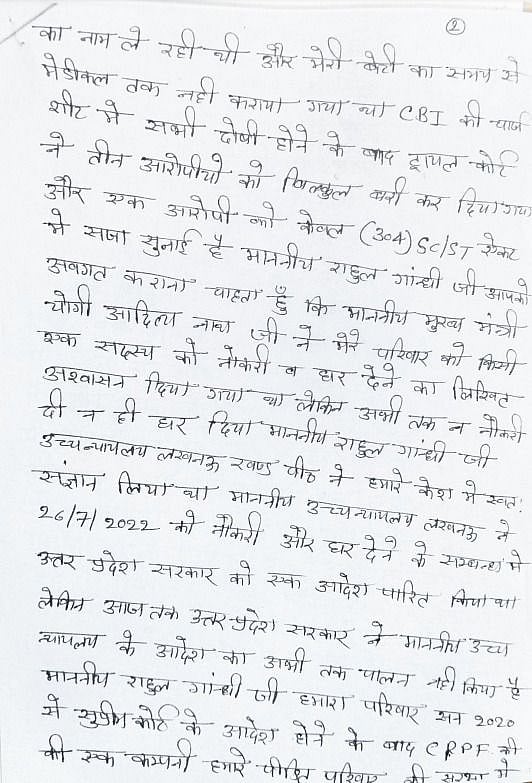 2
का नाम ले रही थी और मेरी बेटी का समय से
मेडीकल तक नही कराया गया था CBI की चार्ज
शीट मे सभी दोषी होने के बाद ट्रायल कोर्ट
ने तीन आरोपीयो को बिल्कुल बरी कर दिया गया
और एक आरोपी को केवल (304) SC/ST ऐक्ट
मे सजा सुनाई है माननीय राहुल गांन्धी जी आपको
अवगत कराना चाहता हूँ कि माननीय मुख्य मंत्री
योगी आदित्य नाथ जी ने मेरे परिवार को किसी
एक सदस्य को नौकरी व घर देने का लिखित
अश्वासन दिया गया था लेकिन अभी तक न नौकरी
दी न ही घर दिया माननीय राहुल गांन्धी जी
उच्चन्यायलय लखनऊ खण्ड पीठ ने हमारे केश मे स्वत:
संज्ञान लिया था माननीय उच्चन्यायलय लखनऊ ने
26/7/2022 को नौकरी और घर देने के सम्बन्ध मे
उत्तर प्रदेश सरकार को एक आदेश पारित किया था
लेकिन आज तक उत्तर प्रदेश सरकार ने माननीय उच्च
न्यायलय के आदेश का अभी तक पालन नही किया है
माननीय राहुल गांन्धी जी हमारा परिवार सन 2020
से सुप्रीम कोर्ट के आदेश होने के बाद CRPF की
की एक कम्पनी हमारे पीड़ित परिवार की सुरक्षा मे